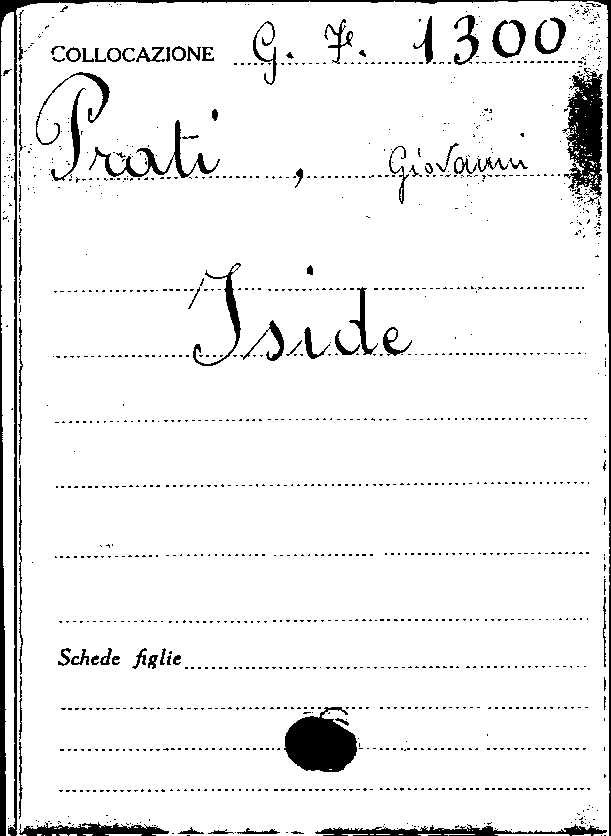 COLLOCAZIONE G. F. 1300
Prati, Giovanni
Iside
Schede figlie